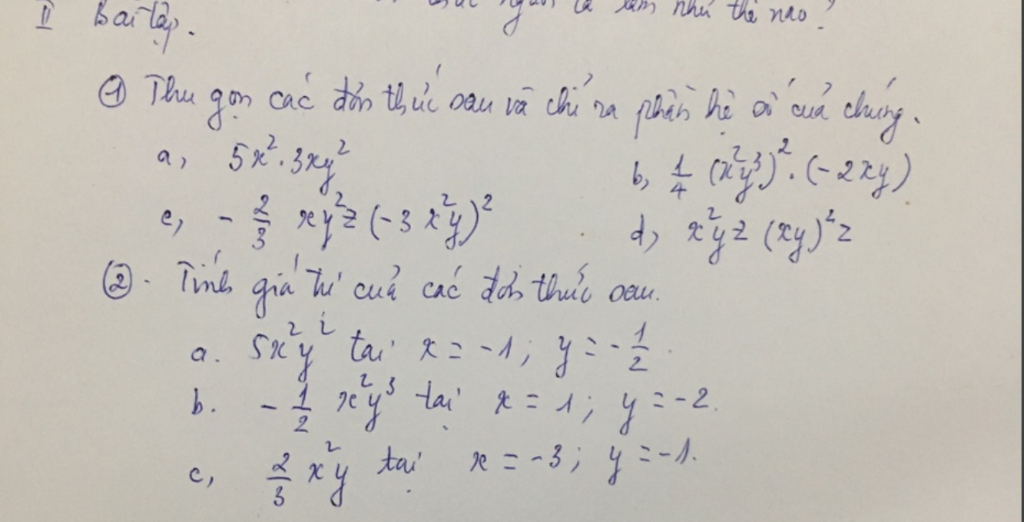 người ta làm như thế nào?
II Bài tập.
① Thu gọn các đơn thức sau và chỉ ra phần hệ số của chúng.
a, 5x².3xy² b, 1/4 (x²y³)².(-2xy)
c, - 2/3 xy²z (-3x²y)² d, x²yz (xy)²z
②. Tính giá trị của các đơn thức sau.
a. 5x²y² tại x = -1; y = - 1/2.
b. - 1/2 x²y³ tại x = 1; y = -2.
c, 2/3 x²y tại x = -3; y = -1.